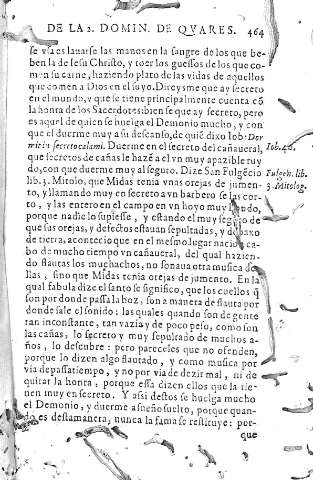 DE LA 2. DOMIN. DE QVARES. 464
se vsa es lauarse las manos en la sangre de los que be-
ben la de Iesu Christo, y roer los guessos de los que co-
men su carne, haziendo plato de las vidas de aquellos
que comen a Dios en el suyo. Direysme que ay secreto
en el mundo, y que se tiene principalmente cuenta cõ
la honra de los Sacerdotes: bien se que ay secreto, pero
es aquel de quien se huelga el Demonio mucho, y con
que el duerme muy a su descanso, de quiē dixo Iob: Dor
mit in secreto calami. Duerme en el secreto del cañaueral,
Iob. 40.
que secretos de cañas le hazē a el vn muy apazible ruy
do, con que duerme muy al seguro. Dize San Fulgēcio
Fulgen. lib.
lib. 3. Mitolo, que Midas tenia vnas orejas de jumen-
3. Mitolog.
to, y llamando muy en secreto a vn barbero se las cor-
to, y las entero en el campo en vn hoyo muy hondo,
porque nadie lo supiesse, y estando el muy seguro de
que sus orejas, y defectos estauan sepultadas, y debaxo
de tierra, acontecio que en el mesmo lugar nacio a ca-
bo de mucho tiempo vn cañaueral, del qual hazien-
do flautas los muchachos, no sonaua otra musica de
llas, sino que Midas tenia orejas de jumento. En la
qual fabula dize el santo se significo, que los cuellos q̃
son por donde passa la boz, son a manera de flauta por
donde sale el sonido: las quales quando son de gente
tan inconstante, tan vazia y de poco peso, como son
las cañas, lo secreto y muy sepultado de muchos a-
ños, lo descubre: pero pareceles que no ofenden,
porque lo dizen algo flautado, y como musica por
via de passatiempo, y no por via de dezir mal, ni de
quitar la honra, porque essa dizen ellos que la tie-
nen muy en secreto. Y assi destos se huelga mucho
el Demonio, y duerme a sueño suelto, porque quan-
do es desta manera, nunca la fama se restituye: por-
que